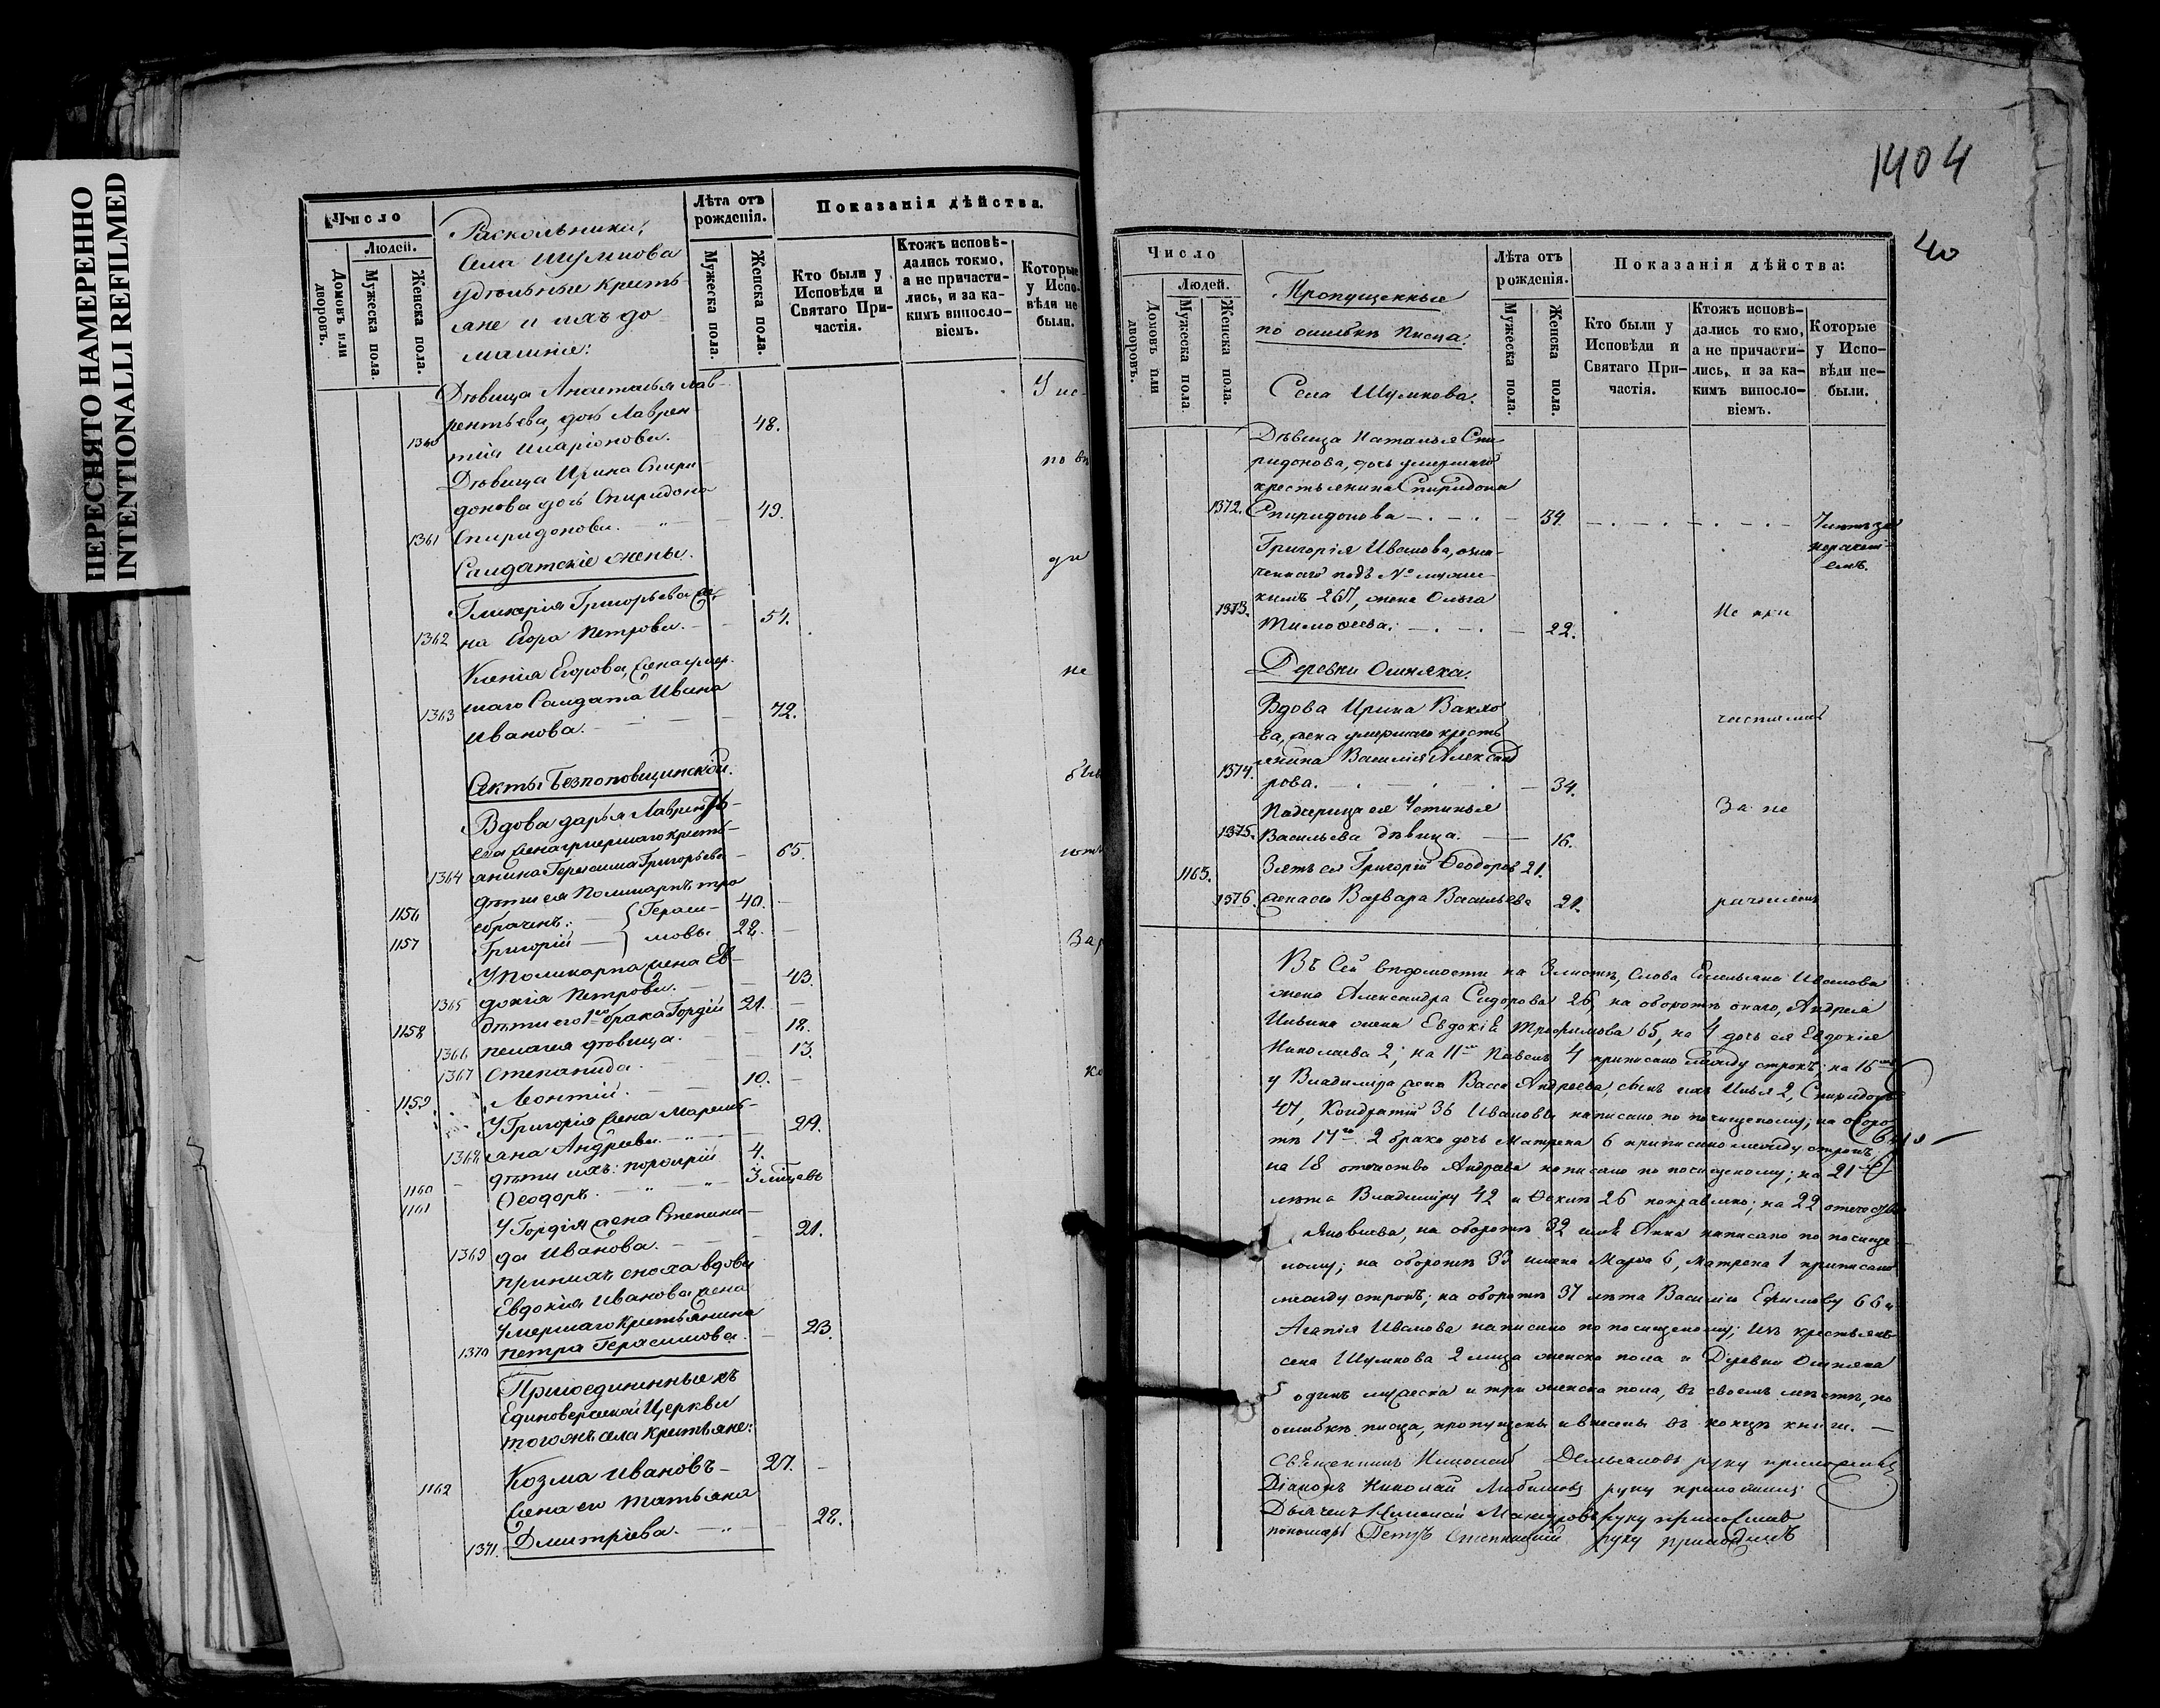 ПЕРЕСНЯТО НАМЕРЕННО
INTENTIONALLI REFILMED
Число
Людей.
Домовъ или дворовъ.
Мужеска пола.
Женска пола.
Раскольники,
села Шумкова
удѣльные крестъ
яне и ихъ до
машніе:
Лѣта отъ рожденія.
Мужеска пола.
Женска пола.
Показанія дѣйства.
Кто были у Исповѣди и Святаго Причастія.
Ктожъ исповѣдались токмо, а не причастились, и за какимъ винословіемъ.
Которые у Испо- вѣди не были.
Дѣвица Анастасья Лав-
рентьева, дочь Лаврен
1360 тія Иларіонова. 48.
Дѣвица Ирина Спири
донова дочь Спиридона
1361 Спиридонова. 49.
Салдатскіе жены.
Гликерія Григорьева же
1362 на Егора Петрова. 54.
Ксенія Егорова, жена умер.
1363 шаго Салдата Ивана 72.
Иванова.
Секты Безпоповщинской.
Вдова Дарья Лаврентъ-
ева жена умершаго крестъ-
1364 янина Герасима Григорьева 65.
дѣти ея Поликарпъ тро
1156 ебраченъ: Гераси- 40.
1157 Григорій мовы 28.
У Поликарпа жена Ев-
1365 докія Петрова. 43.
1158 дѣти его 1го брака Гордій 21.
1366 Пелагея дѣвица. 18.
1367 Степанида. 13.
1159 Леонтій. 10.
У Григорія жена Марем-
1368 яна Андреева. 29.
1160 дѣти ихъ: Порфирій 4.
1161 Ѳеодоръ. 3 мѣсяцевъ
У Гордія жена Степани-
1369 да Иванова. 21.
При нихъ сноха вдова
Евдокія Иванова жена
умершаго крестьянина
1370 Петра Герасимова. 23.
Присоединенные къ
Единоверческой Церкви
того жъ села крестьяне:
1162 Козма Ивановъ 27.
жена его Татьяна
1371. Дмитріева. 28.
1404
40
Число
Людей.
Домовъ или дворовъ.
Мужеска пола.
Женска пола.
Пропущенные
по ошибкѣ писца.
Села Шумкова.
Лѣта отъ рожденія.
Мужеска пола.
Женска пола.
Показанія дѣйства:
Кто были у Исповѣди и Святаго Причастія.
Ктожъ исповѣдались токмо, а не причастились, и за какимъ винословіемъ.
Которые у Исповѣди не были.
Дѣвица Наталья Спи
ридонова, дочь умершаго
крестьянина Спиридона
1372. Спиридонова 34.
Григорія Иванова, озна-
ченнаго подъ № мужс-
кимъ 267, жена Ольга
1373. Тимоѳеева. 22. Не при
Деревни Ошняка.
Вдова Ирина Вахло
ва, жена умершаго крестъ частились
1374. янина Василія Александ
рова. 34.
Падчерица ея Устинья За не
1375. Васильева дѣвица. 16.
1163. Зять ея Григорій Ѳеодоровъ 21.
1376. жена его Варвара Васильева 21. раченіемъ
Въ сей вѣдомости на 3 листѣ, слова Емельяна Иванова
жена Александра Сидорова 26, на оборотѣ онаго, Андрея
Ильина жена Евдокія Трофимова 65, на 4 дочь ея Евдокія
Николаева 2; на 11м Павелъ 4 приписано между строкъ; на 16мъ
у Владиміра жена Васса Андреева, сынъ ихъ Илья 2, Спиридонъ
47, Кондратій 36 Ивановы написано по почищеному; на оборо
тѣ 17го 2 брака дочь Матрена 6 приписано между строкъ,
на 18 отчество Андреева написано по почищеному; на 21мъ
лѣта Владиміру 42 и Ѳеклѣ 26 поправлено; на 22 отчество
Яковлева, на оборотѣ 32 имя Анна написано по почище
ному; на оборотѣ 33 имена Марѳа 6, Матрена 1 приписано
между строкъ; на оборотѣ 37 лѣта Василію Ефимову 66 и
Агапія Иванова написано по почищеному; изъ крестьянъ
села Шумкова 2 лица женска пола и Деревни Ошняка
одинъ мужеска и три женска пола, въ своемъ мѣстѣ, по
ошибкѣ писца, пропущены и внесены въ концѣ книги.
Священникъ Николай Демьяновъ руку приложилъ
Діаконъ Николай Любимовъ руку приложилъ
Дьячекъ Николай руку приложилъ
Пономарь Петръ руку приложилъ